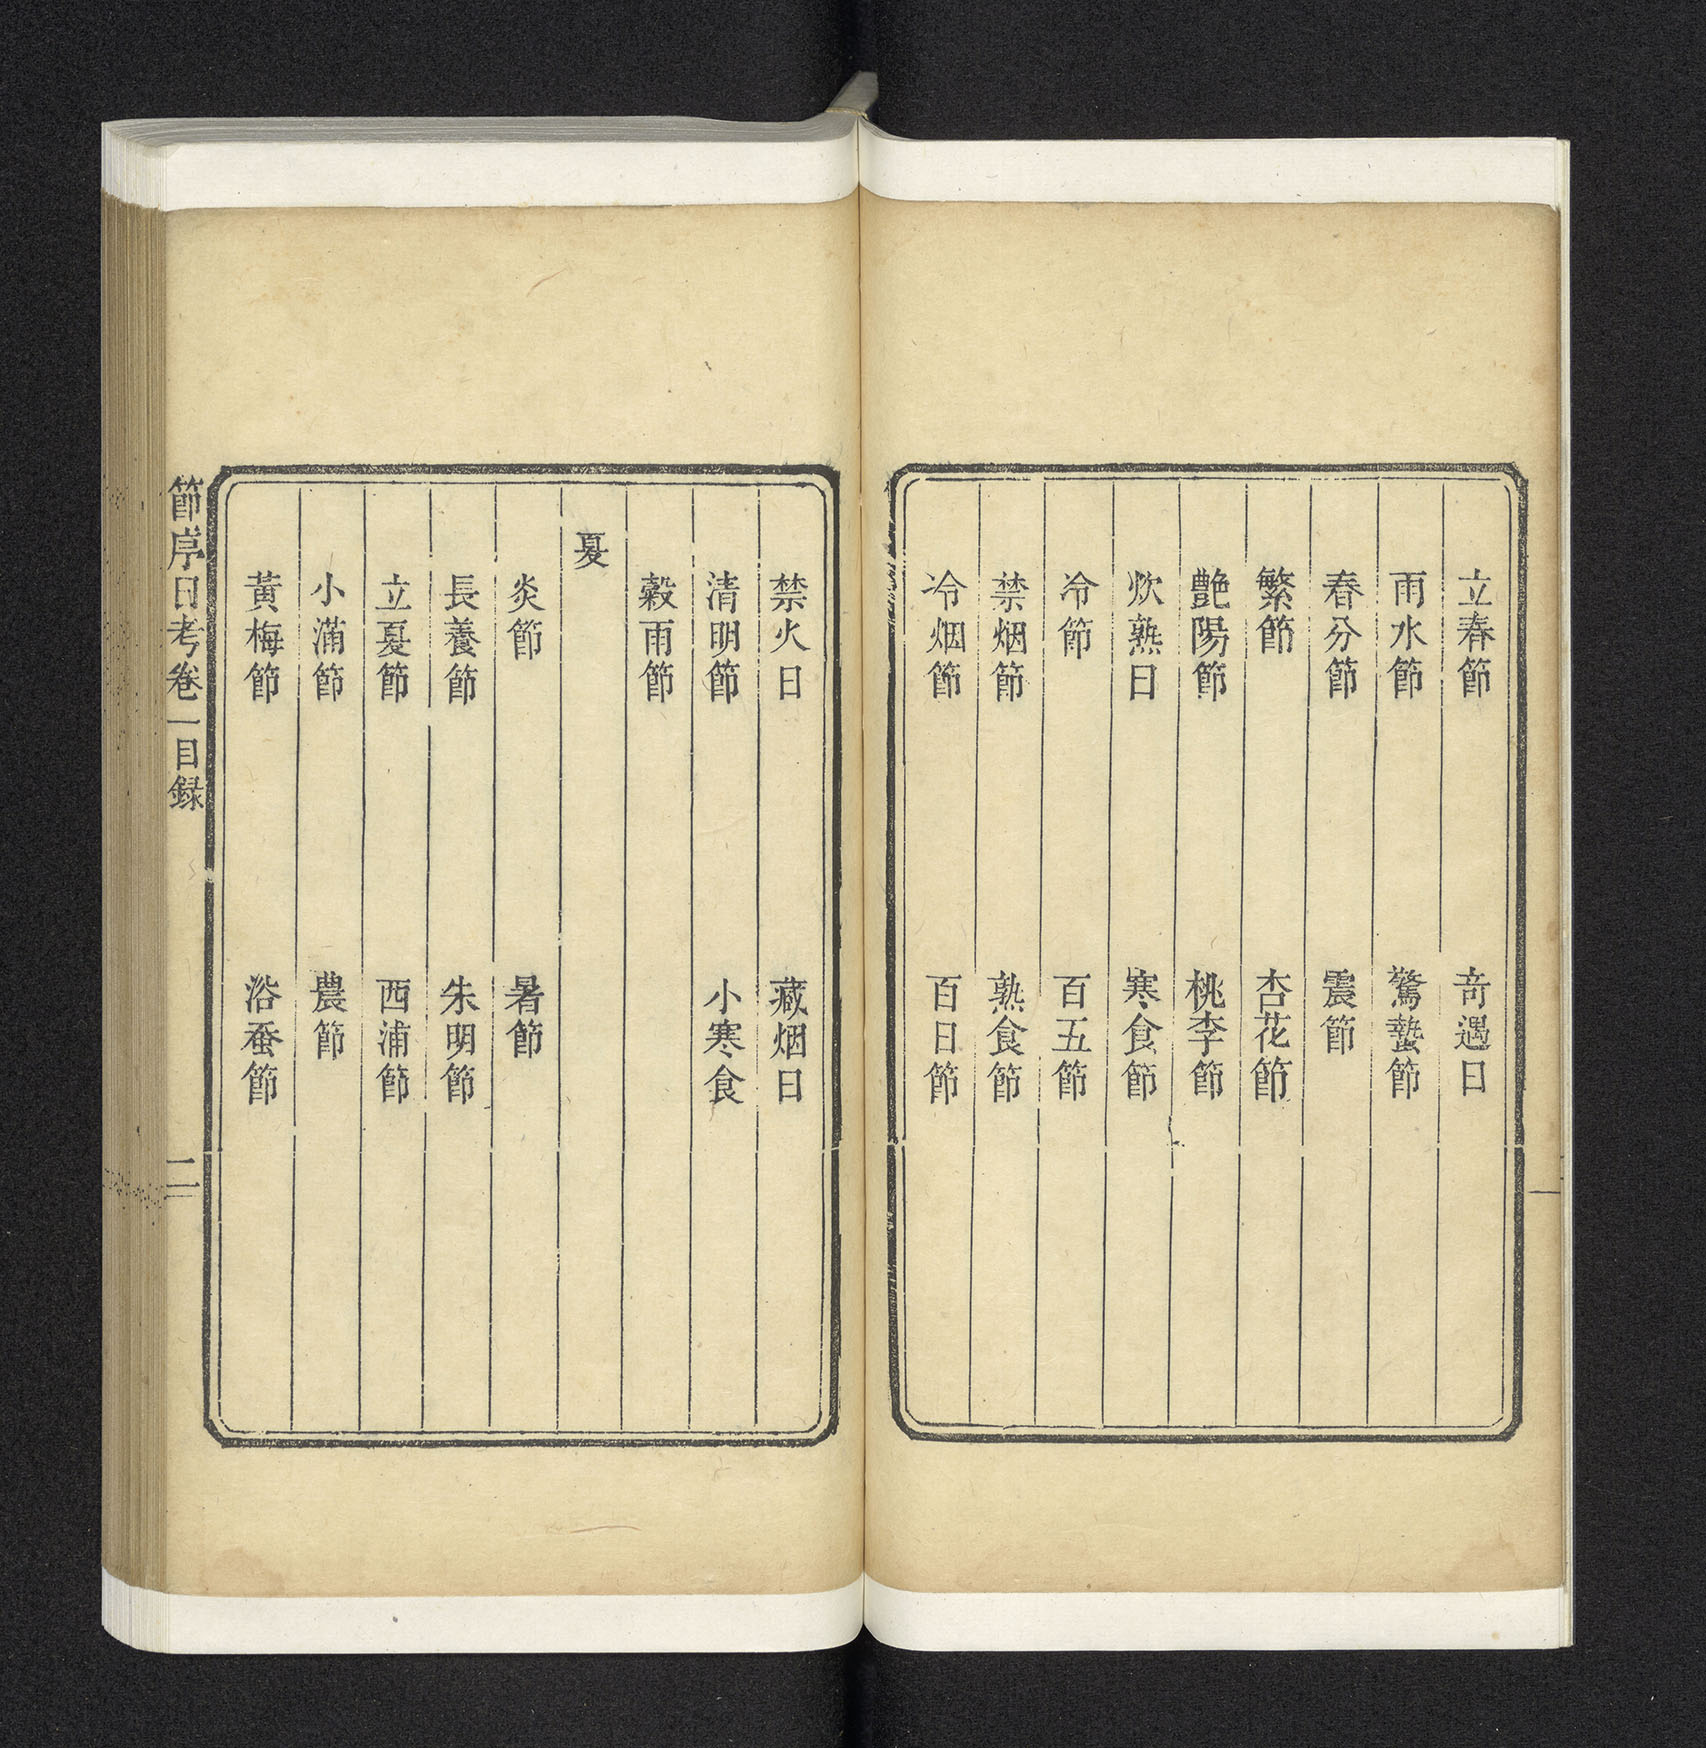 立春節　奇遇日
雨水節　驚蟄節
春分節　震節
繁節　杏花節
艷陽節　桃李節
炊熟日　寒食節
冷節　百五節
禁烟節　熟食節
冷烟節　百日節
禁火日　藏烟日
清明節　小寒食
穀雨節
夏
炎節　暑節
長養節　朱明節
立夏節　西浦節
小滿節　農節
黃梅節　浴蚕節
節序日考卷一目録　二